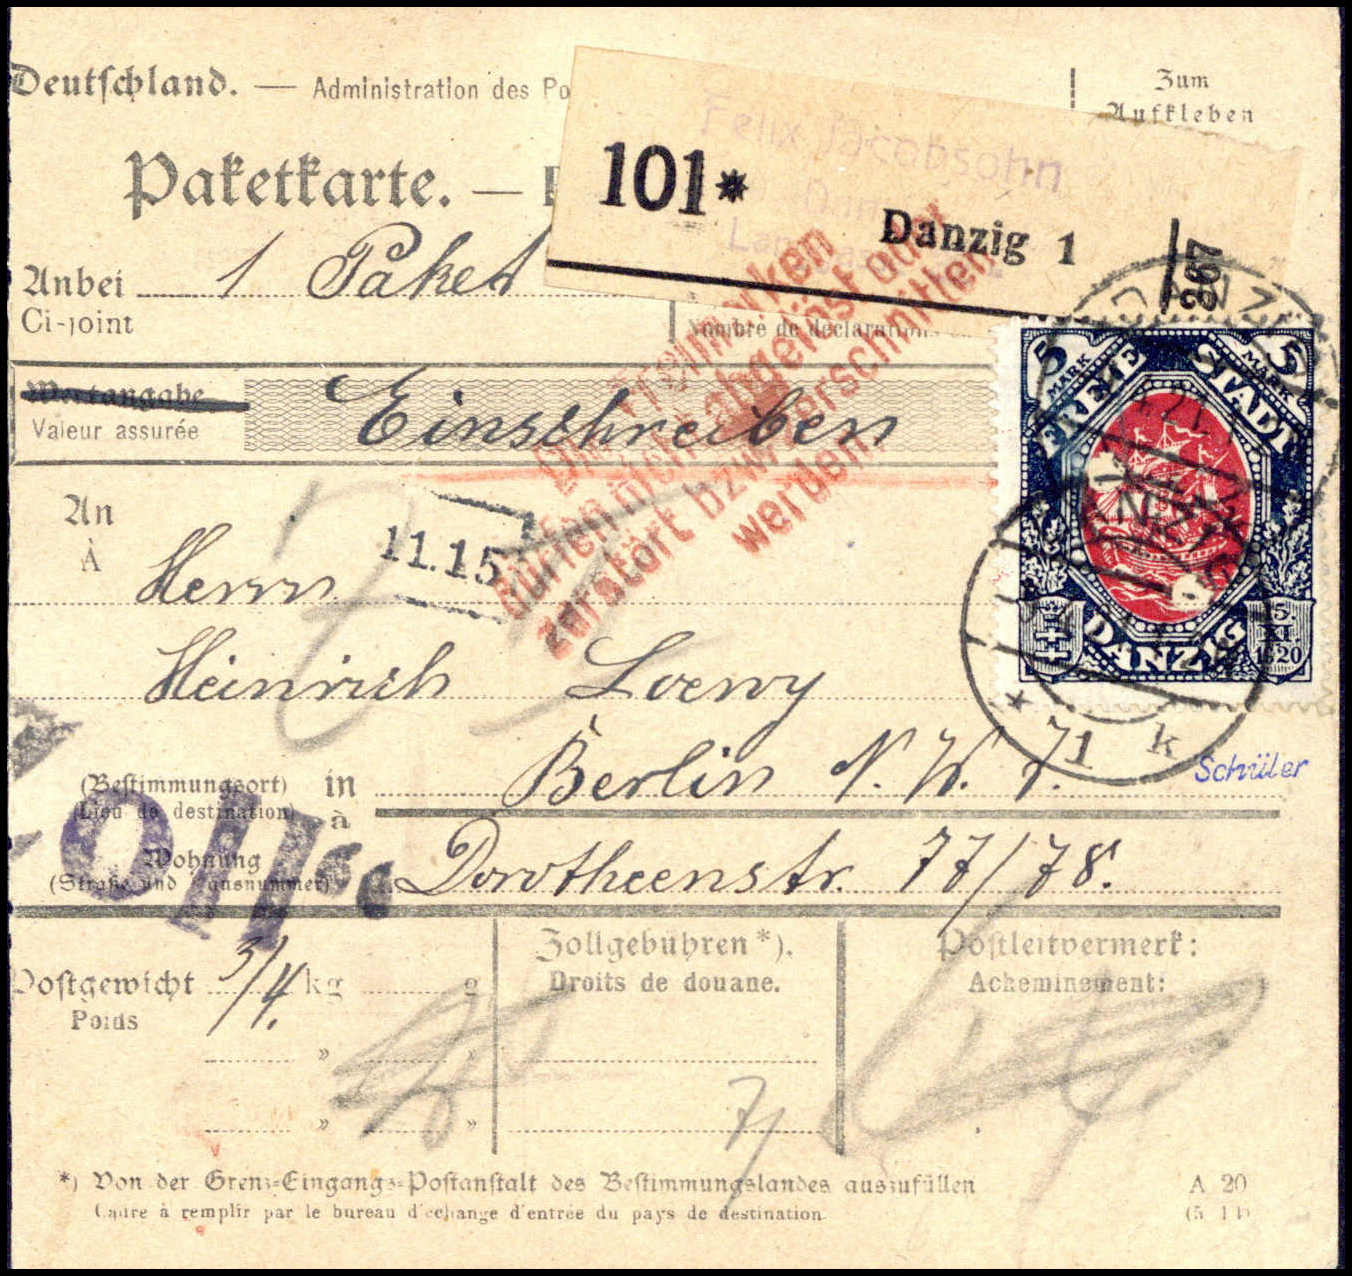 Deutschland. — Administration des Po
Zum
Aufkleben
Paketkarte. —
Felix Jacobsohn
101*
Danzig 1
267
Anbei 1 Paket
Ci-joint
Nombre de déclarations
Wertangabe
Valeur assurée
Einschreiben
Die Freimarken
dürfen nicht abgelöst oder
zerstört bzw. zerschnitten
werden.
5 MARK
5 MARK
FREIE STADT
DANZIG
5. XI. 1920
DANZIG
* 1 k
An
À
Herrn
11.15
Heinrich Loewy
(Bestimmungsort) in Berlin N. W. 7.
(Lieu de destination) à
Schüler
Zoll
Wohnung
(Straße und Hausnummer)
Dorotheenstr. 77/78.
Postgewicht 3/4 kg g
Poids
Zollgebühren *).
Droits de douane.
Postleitvermerk:
Acheminement:
" "
" "
7
*) Von der Grenz-Eingangs-Postanstalt des Bestimmungslandes auszufüllen
Cadre à remplir par le bureau d'échange d'entrée du pays de destination.
A 20